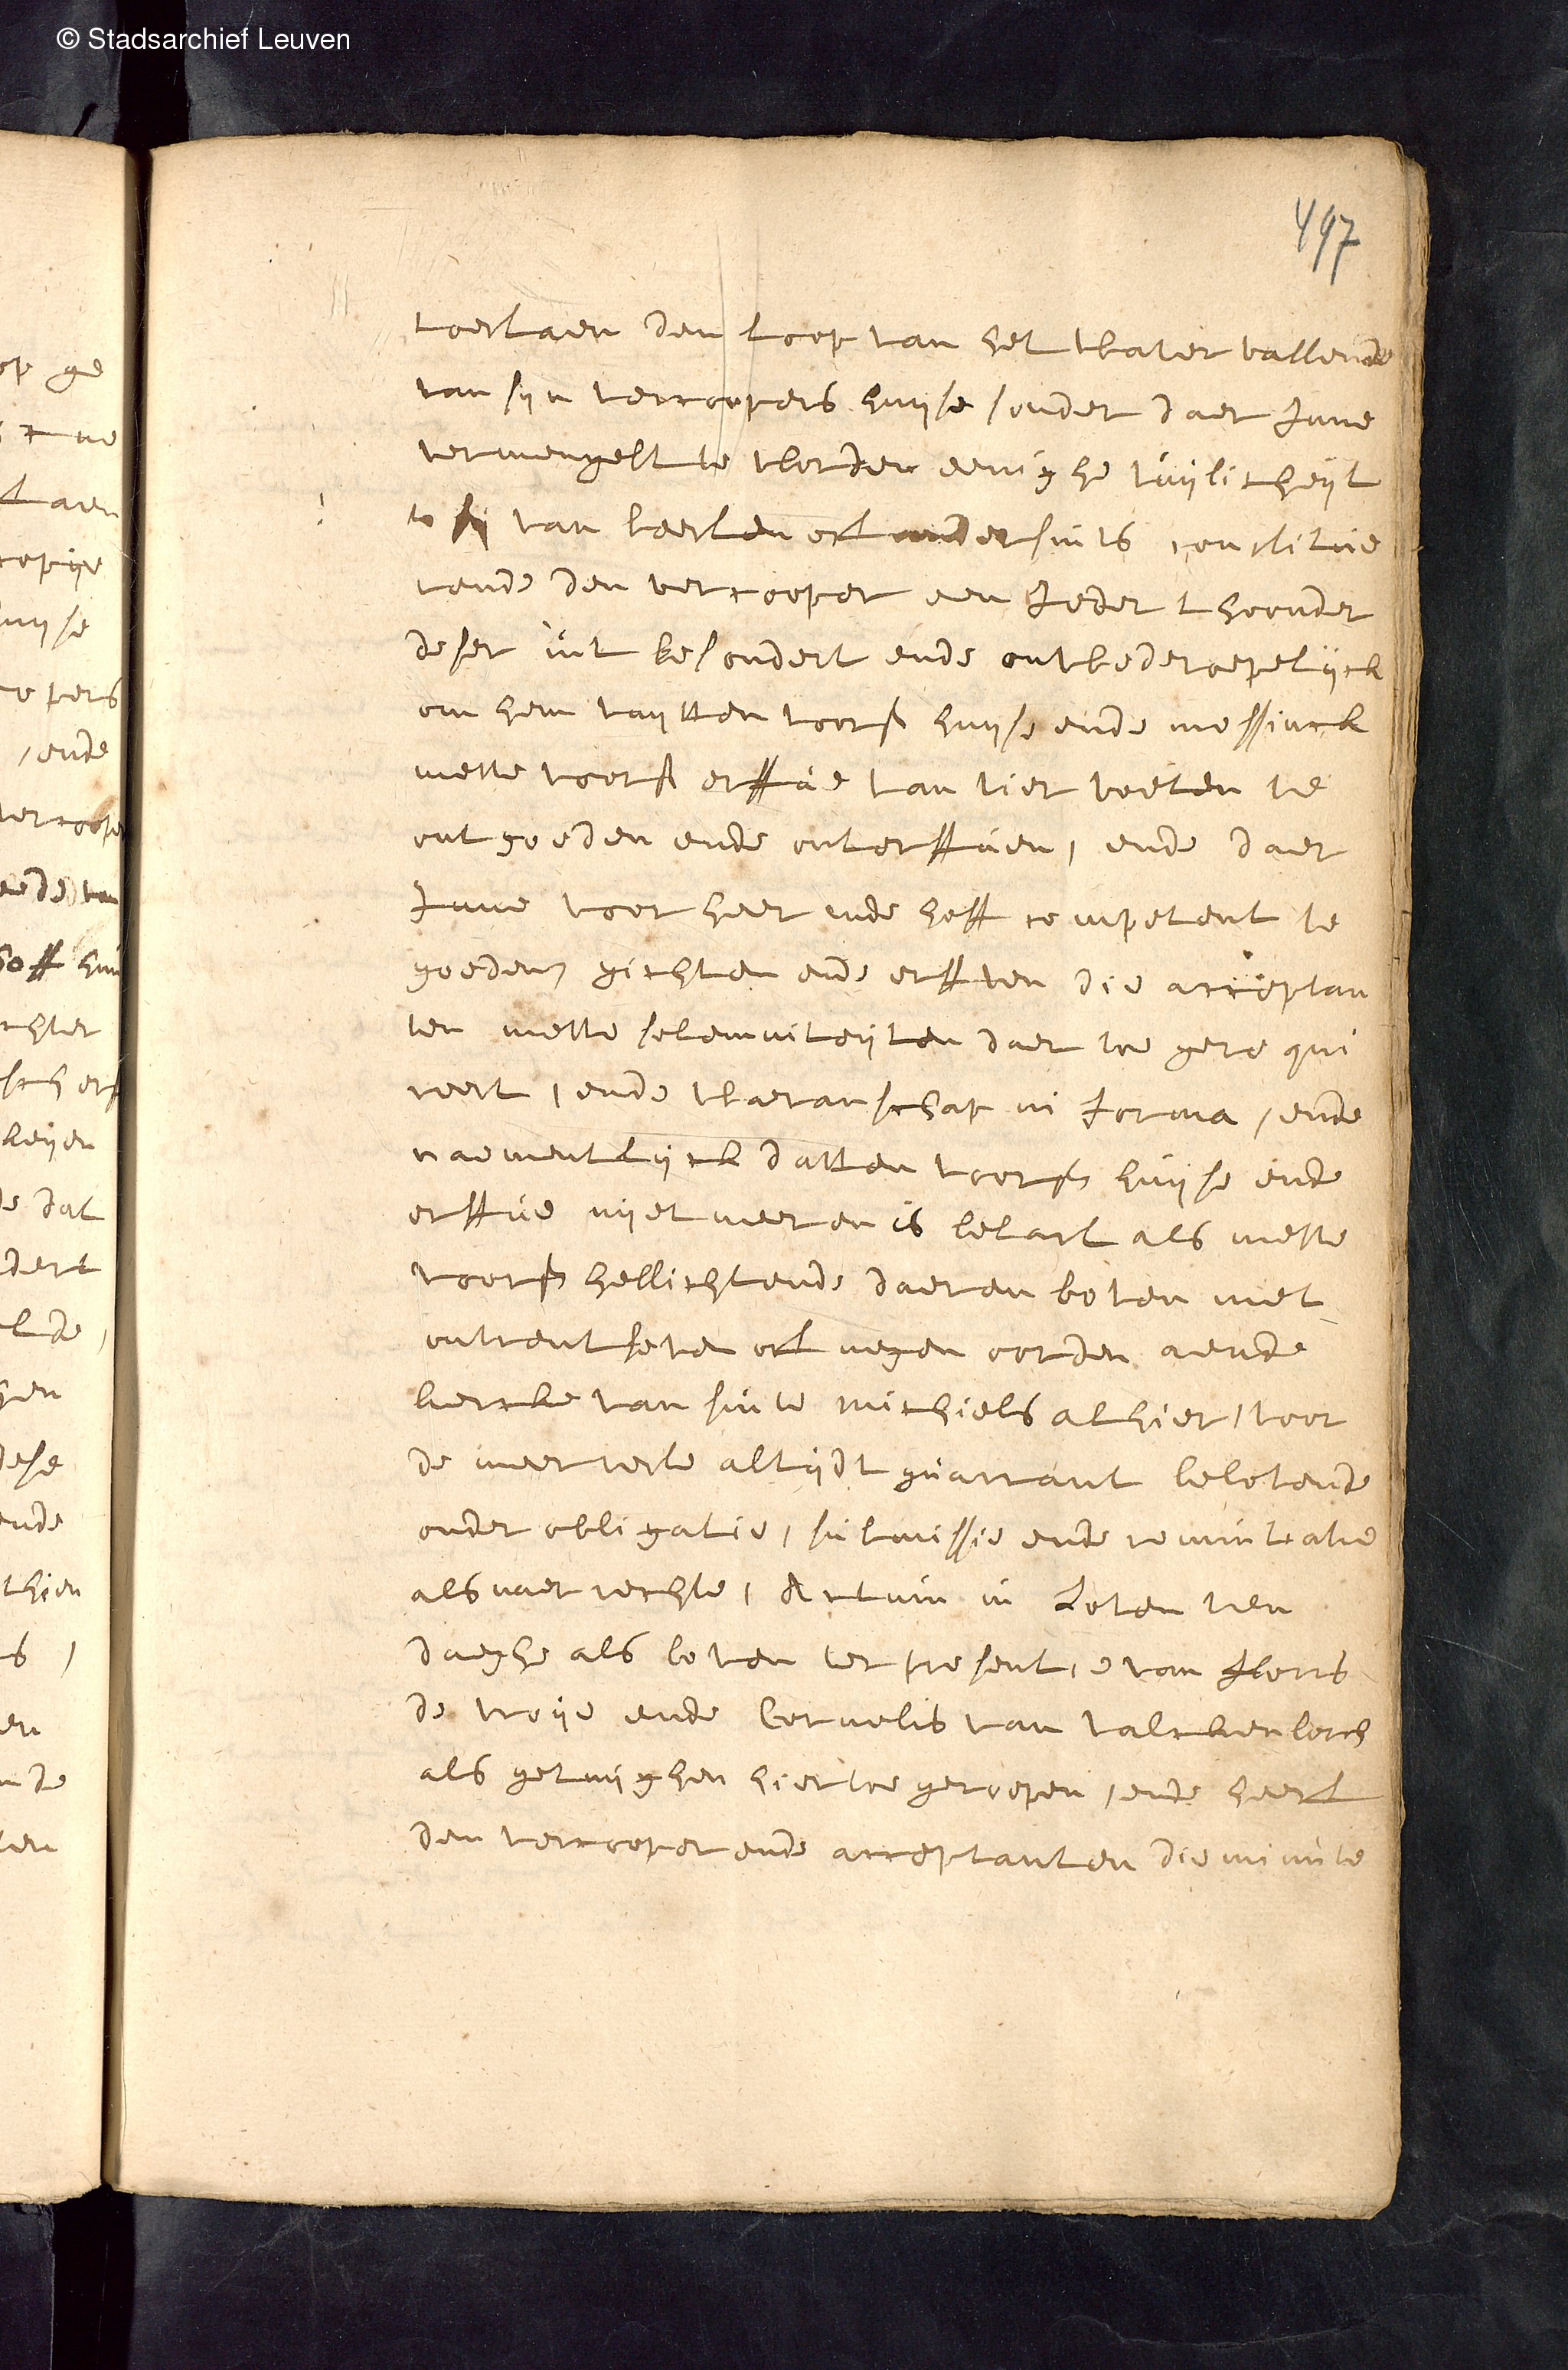 © Stadsarchief Leuven
497
toelaeten den loop van het water vallende
van syn vercoopers huyse sonder daer inne
vermengelt te worden eenighe vuylicheyt
tsy van beesten oft andersints constitue
rende den vercooper een ieder thoonder
deser int besondert ende onwederoepelijck
om hem vuytten voors huyse ende messinck
mette voors erffve van vier voeten te
ontgoeden ende onterffven, ende daer
inne voor heer ende hoff competent te
goeden gichten ende erffven die acceptan
ten mette solemniteyten daer toe gerequi
reert, ende waranschap in forma, ende
naementlijck datten voors huyse ende
erffve nyet meer en is belast als mette
voors hellichtende daer en boven met
ontrent seven oft negen oorden aende
kercke van sinte michiels alhier, voor
de meerreste altijdt guarrant belovende
onder obligatie, submissie ende renuntiatie
als naer rechte, Actum in Loven ten
daeghe als boven ter presentie van Floris
de vroye ende Cornelis van Valckenborch
als getuyghen hier toe geroepen, ende heeft
den vercooper ende acceptanten die minute
op ge
laen
copije
huyse
copers
, ende
vercooper
hoff
chter
keyen
de dat
dert
dese
ende
thien